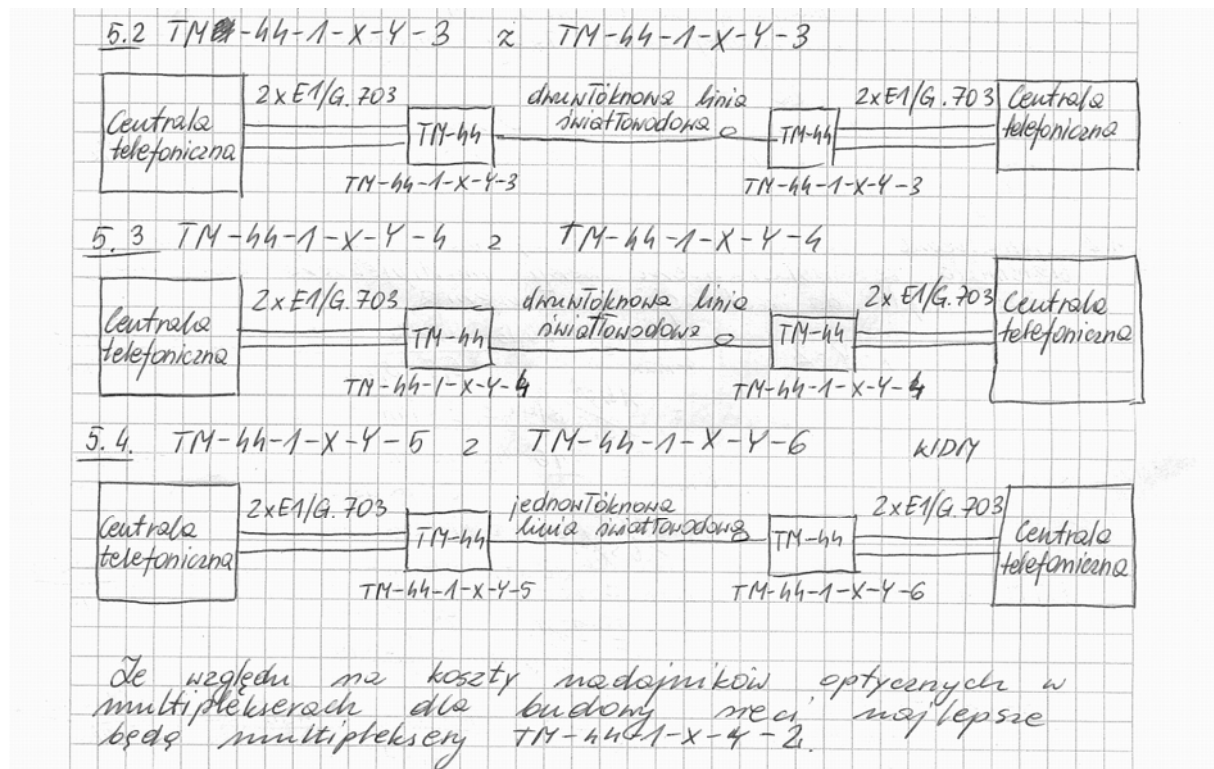 5.2 TM-44-1-X-Y-3 z TM-44-1-X-Y-3
Centrala telefoniczna
2xE1/G.703
TM-44
TM-44-1-X-Y-3
dwuwłóknowa linia
światłowodowa
TM-44
TM-44-1-X-Y-3
2xE1/G.703
Centrala
telefoniczna
5.3 TM-44-1-X-Y-4 z TM-44-1-X-Y-4
Centrala
telefoniczna
2xE1/G.703
TM-44
TM-44-1-X-Y-4
dwuwłóknowa linia
światłowodowa
TM-44
TM-44-1-X-Y-4
2xE1/G.703
Centrala
telefoniczna
5.4. TM-44-1-X-Y-5 z TM-44-1-X-Y-6 WDM
Centrala
telefoniczna
2xE1/G.703
TM-44
TM-44-1-X-Y-5
jednowłóknowa
linia światłowodowa
TM-44
TM-44-1-X-Y-6
2xE1/G.703
Centrala
telefoniczna
Ze względu na koszty nadajników optycznych w
multiplekserach dla budowy sieci najlepsze
będą multipleksery TM-44-1-X-Y-2.